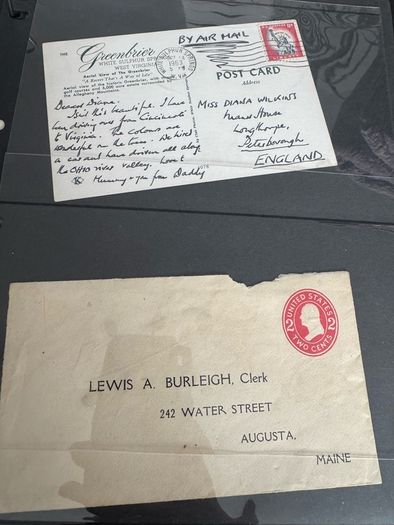 THE
Greenbrier
WHITE SULPHUR SPRINGS
WEST VIRGINIA
"A Resort That's A Way of Life"
Aerial View of The Greenbrier
Aerial view of the historic Greenbrier, with
golf courses and 6,500 acre estate surrounded by
the Allegheny Mountains.
Dearest Diana.
Isn't this beautiful. I have
been driving over from Cincinnati
to Virginia. The colours are
wonderful on the trees. We hired
a car and have driven all along
the OHIO river valley. Love
Mummy + from Daddy
BY AIR MAIL
1963
W. VA.
POST CARD
Address
MISS DIANA WILKINS
House
Longthorpe,
Peterborough
ENGLAND
UNITED STATES
2 2
TWO CENTS
LEWIS A. BURLEIGH, Clerk
242 WATER STREET
AUGUSTA,
MAINE